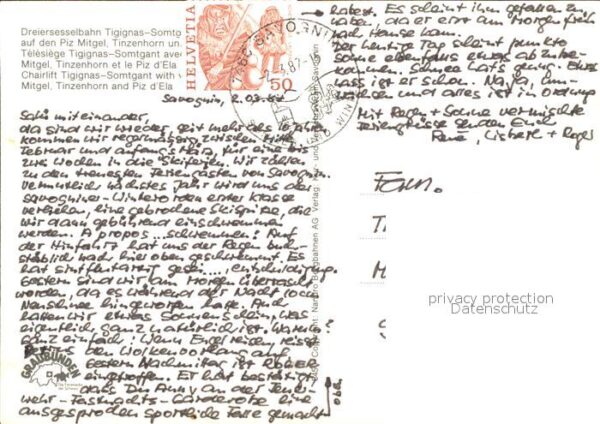 Dreiersesselbahn Tigignas-Somtg
auf den Piz Mitgel, Tinzenhorn un
Télésiège Tigignas-Somtgant
Mitgel, Tinzenhorn et le Piz d'Ela
Chairlift Tigignas-Somtgant with
Mitgel, Tinzenhorn and Piz d'Ela
HELVETIA
50
SAVOGNIN
Savognin, 2.03.87
Salü miteinander,
da sind wir wieder, seit mehr als 10 Jahren
kommen wir regelmässig, zwischen Mitte
Februar und anfangs März, für eine bis
zwei Wochen in die Skiferien. Wir zählen
zu den treuesten Feriengästen von Savognin.
Vermutlich nächstes Jahr wird uns der
Savogniner-Winterorden erster Klasse
verliehen, eine gebrochene Skispitze, die
wir dann gebührend einschwemmen
werden. A propos ... schwemmen! Auf
der Hinfahrt hat uns der Regen buch-
stäblich nach hier oben geschwemmt. Es
hat sintflutartig gesei...., entschuldigung.
Gestern sind wir am Morgen überrascht
worden, da es während der Nacht 10cm
Neuschnee hingeworfen hatte. Auch
hatten wir etwas Sonnenschein, was
eigentlich ganz natürlich ist. Warum?
Ganz einfach: Wenn Engel reisen, reisst
Petrus den Wolkenvorhang auf.
Gestern Nachmittag ist Robert
eingetroffen. Er hat bestätigt,
dass Du Anny an der Feuer-
wehr-Fasnachts-Garderobe eine
ausgesprochen sportliche Falle gemacht
hatest. Es scheint ihm gefallen zu
haben, da er erst am Morgen früh
nach Hause kam.
Der heutige Tag scheint punkto
Sonne ebenfalls etwas abzube-
kommen. Schnee hat's genug, etwas
nass ist er schon. Na ja, wir
wachsen und alles ist in Ordnung
Mit Regen + Sonne vermischte
Feriengrüsse senden Euch
René, Lisbeth + Roger
Fam.
privacy protection
Datenschutz
GRAUBÜNDEN